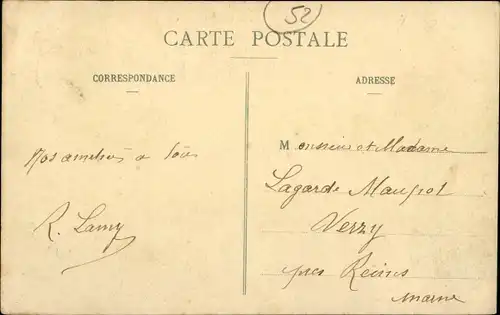 52
CARTE POSTALE
CORRESPONDANCE
ADRESSE
Nos amitiés a tous
R. Lamy
Monsieur et Madame
Lagarde Maugrot
Verzy
près Reims
Marne